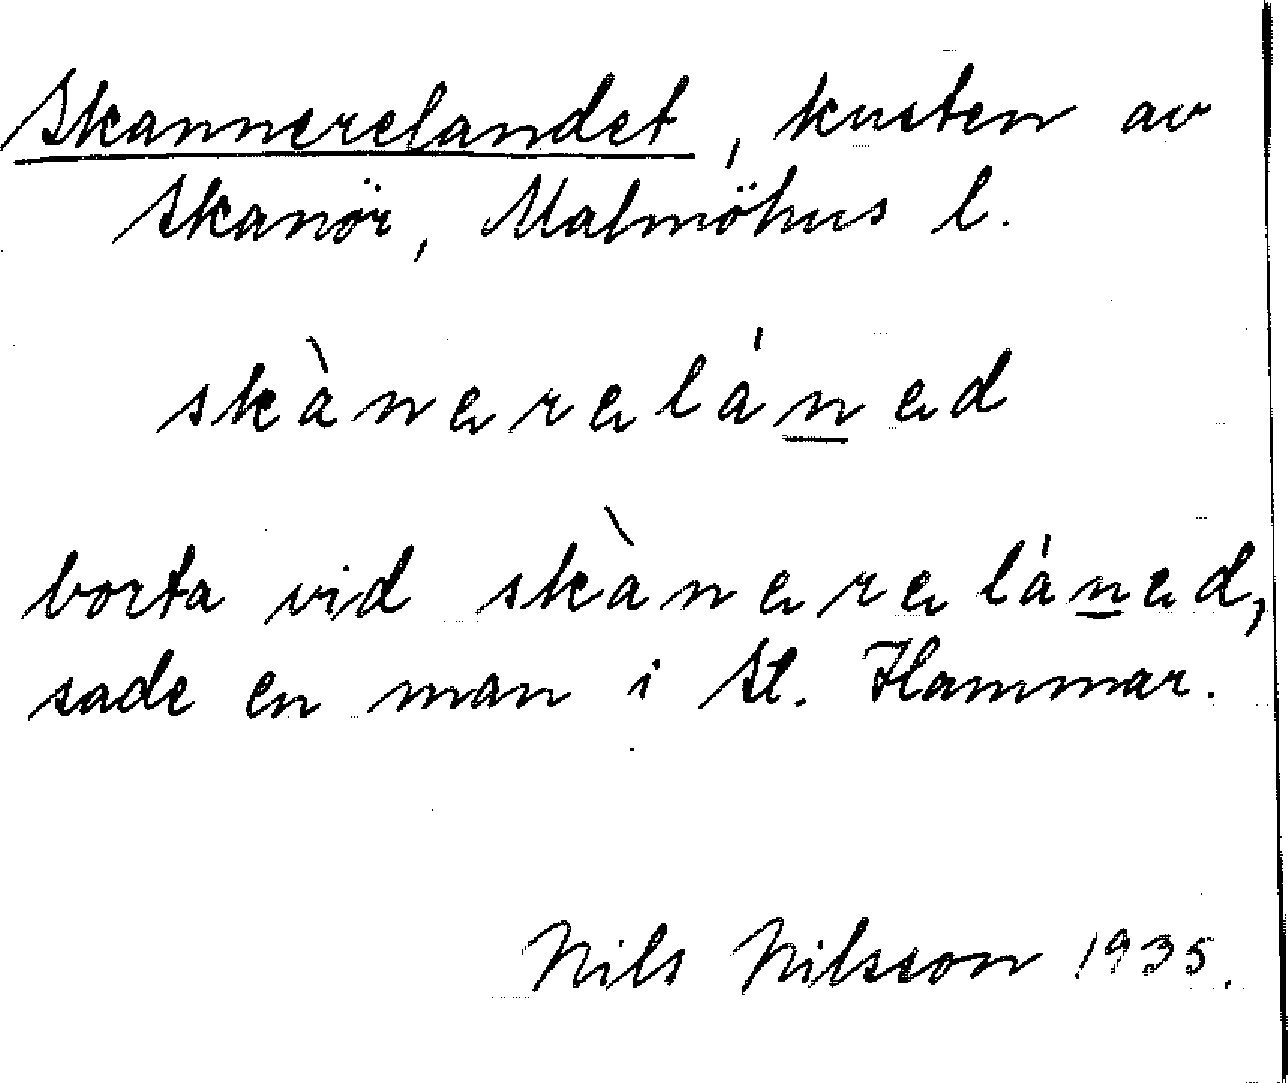 Skannerelandet, kusten av
Skanör, Malmöhus l.
skànereláned
borta vid skànereláned,
sade en man i St. Hammar.
Nils Nilsson 1935.